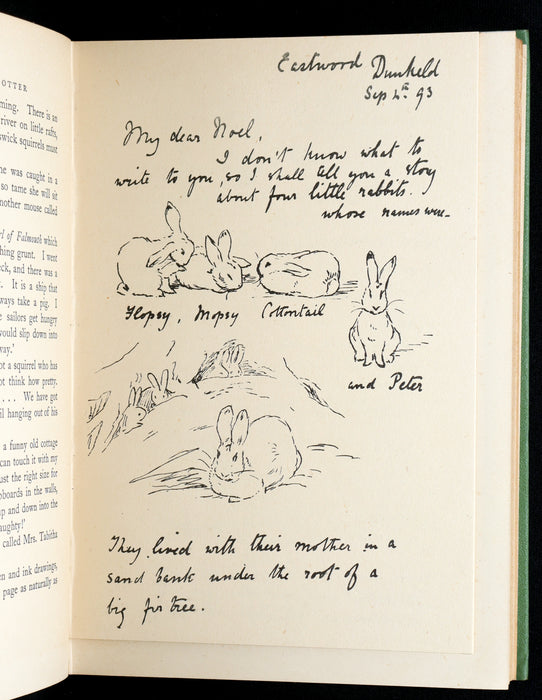 OTTER
ning. There is an
river on little rafts,
swick squirrels must
he was caught in a
so tame she will sit
nother mouse called
rl of Falmouth which
hing grunt. I went
eck, and there was a
t. It is a ship that
ways take a pig. I
e sailors get hungry
would slip down into
way.'
ot a squirrel who has
ot think how pretty.
. . . . We have got
il hanging out of his
a funny old cottage
can touch it with my
ust the right size for
pboards in the walls,
up and down into the
aughty!'
called Mrs. Tabitha
en and ink drawings,
page as naturally as
Eastwood Dunkeld
Sep 4th 93
My dear Noel,
I don't know what to
write to you, so I shall tell you a story
about four little rabbits.
whose names were_
Flopsy, Mopsy Cottontail
and Peter
They lived with their mother in a
sand bank under the root of a
big fir tree.